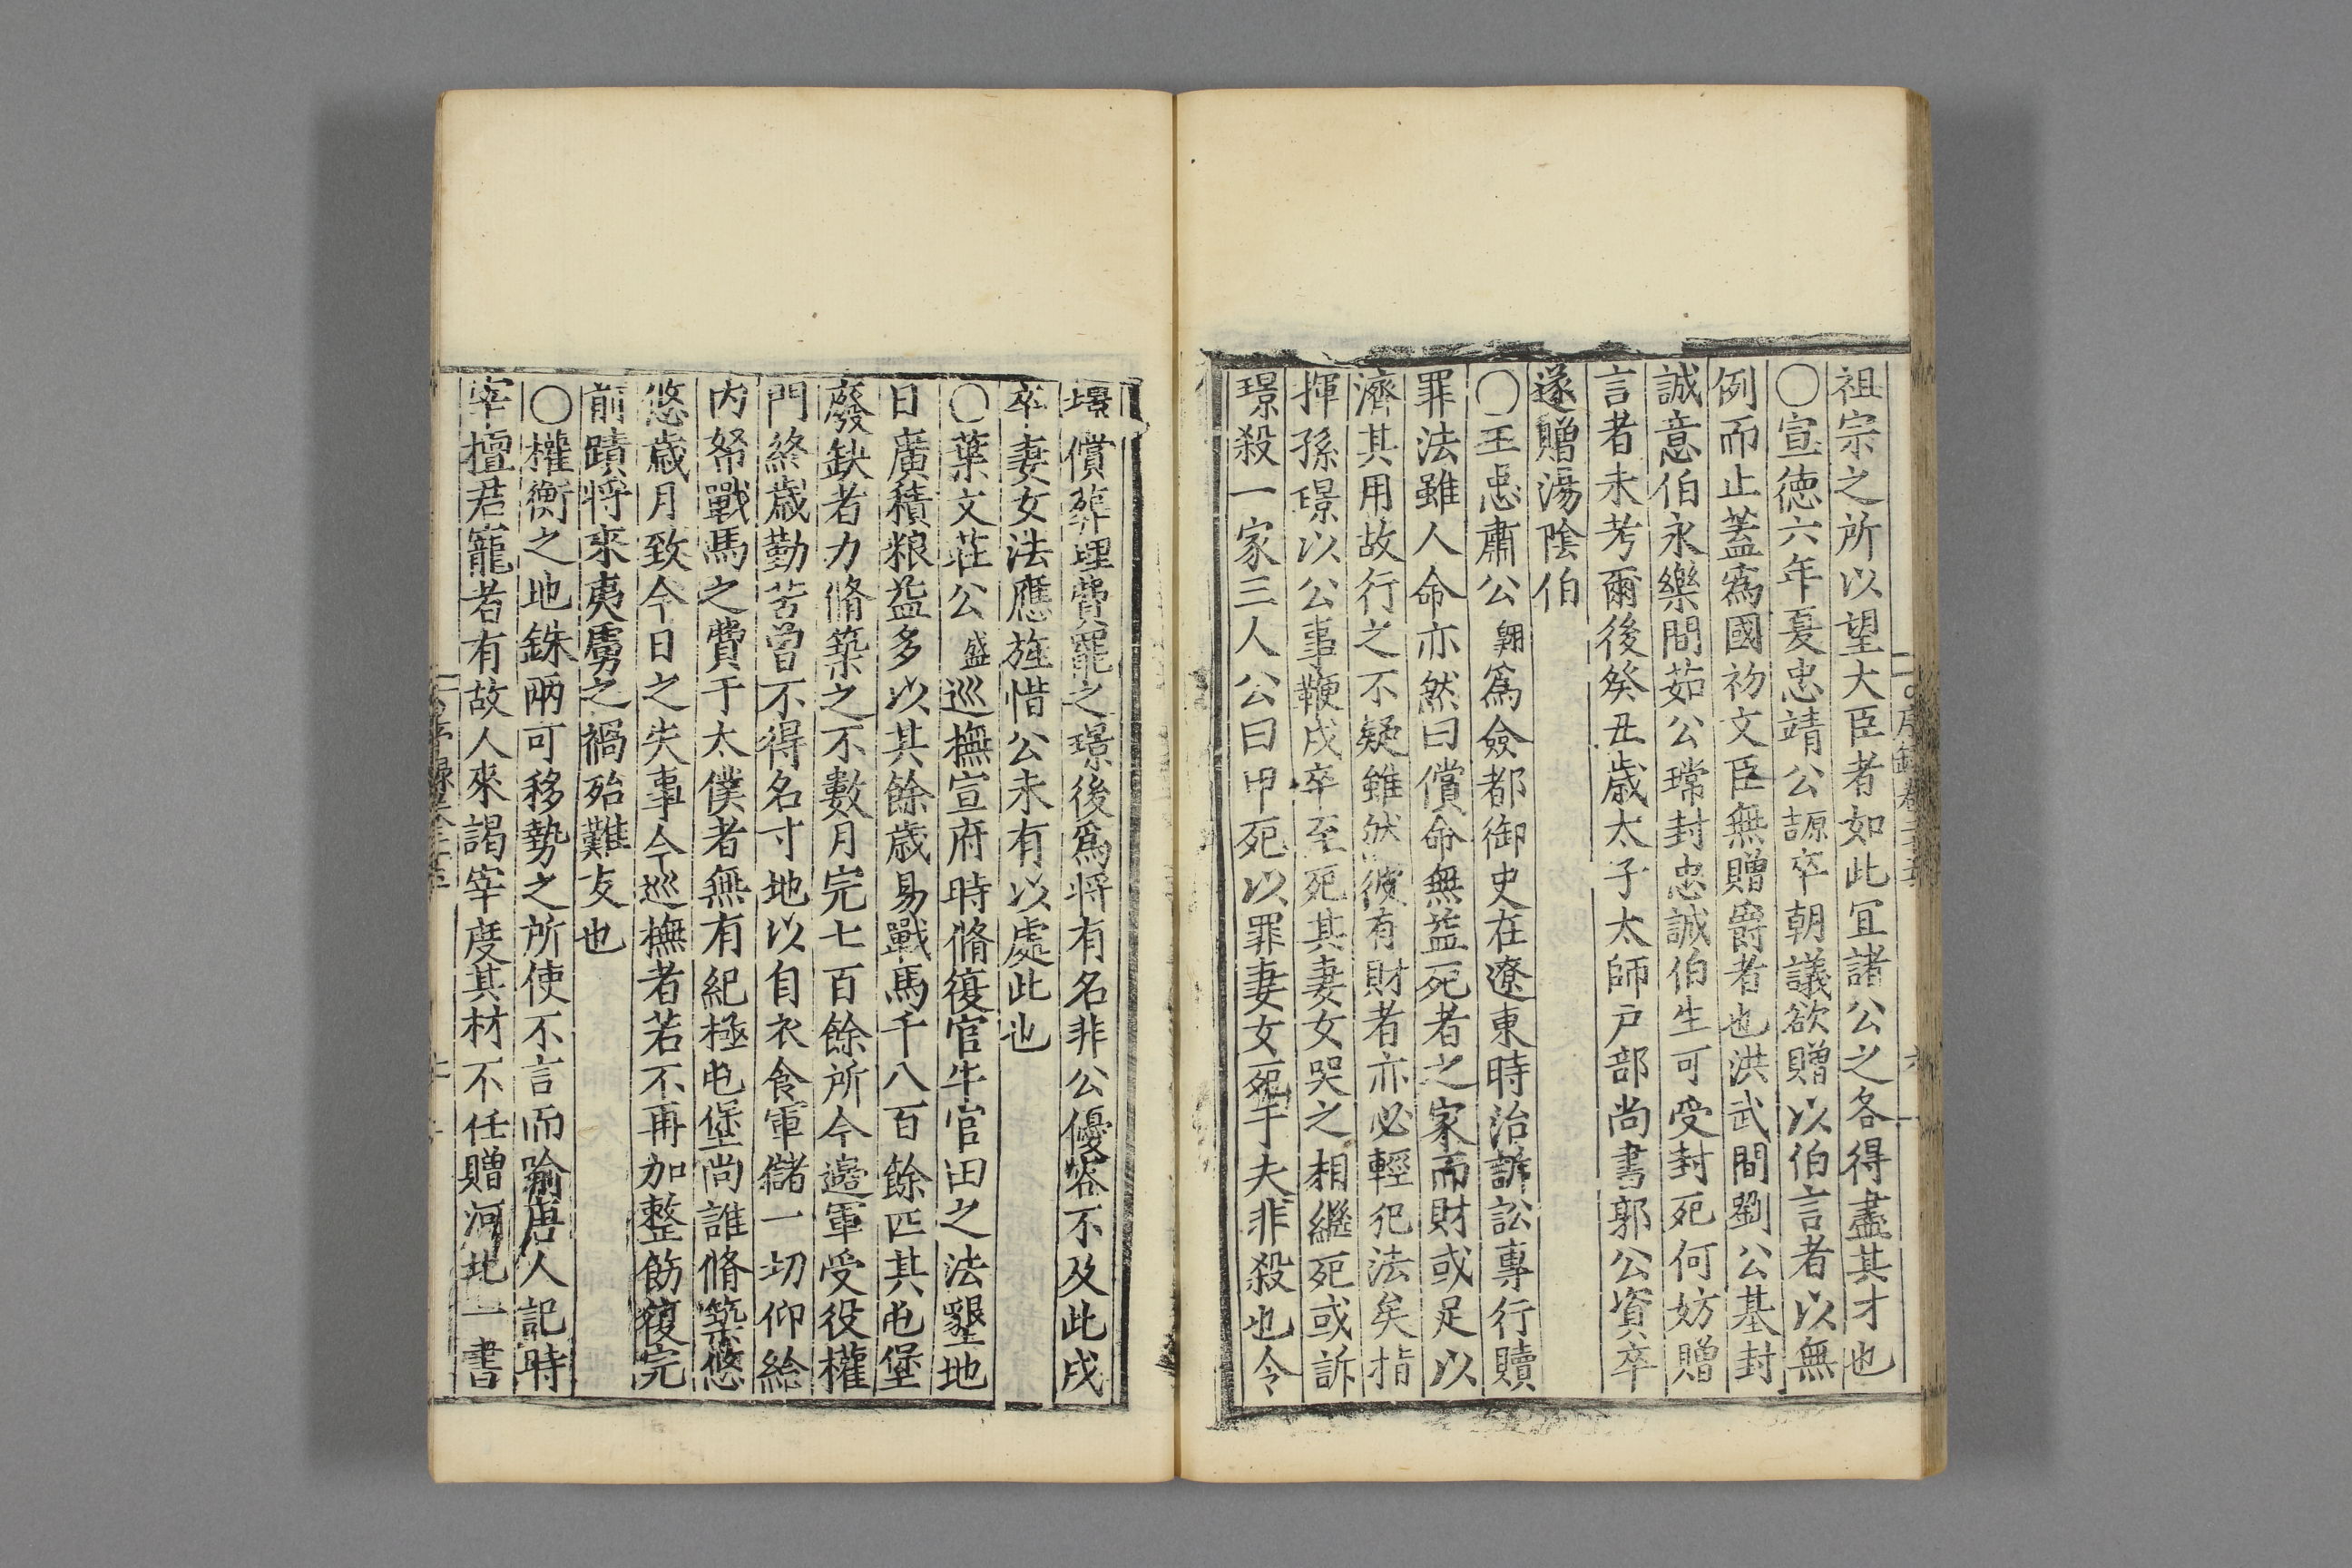 祖宗之所以望大臣者如此冝諸公之各得盡其才也
〇宣徳六年夏忠靖公謜卒朝議欲贈以伯言者以無
例而止蓋爲國初文臣無贈爵者也洪武間劉公基封
誠意伯永樂間茹公瑺封忠誠伯生可受封死何妨贈
言者未考爾後癸丑歲太子太師戶部尚書郭公資卒
遂贈湯陰伯
〇王忠肅公翺爲僉都御史在遼東時治訴訟專行贖
罪法雖人命亦然曰償命無益死者之家而財或足以
濟其用故行之不疑雖然彼有財者亦必輕犯法矣指
揮孫璟以公事鞭戍卒至死其妻女哭之相繼死或訴
璟殺一家三人公曰甲死以罪妻女死于夫非殺也令
璟償葬埋費罷之璟後爲將有名非公優容不及此戍
卒妻女法應旌惜公未有以處此也
〇葉文莊公盛巡撫宣府時脩復官牛官田之法墾地
日廣積粮益多以其餘歲易戰馬千八百餘匹其屯堡
廢缺者力脩築之不數月完七百餘所今邊軍受役權
門終歲勤苦曾不得名寸地以自衣食軍儲一切仰給
内帑戰馬之費于太僕者無有紀極屯堡尚誰脩築悠
悠歲月致今日之失事今巡撫者若不再加整飭復完
前蹟将來夷虜之禍殆難支也
〇權衡之地銖兩可移勢之所使不言而喻唐人記時
宰擅君寵者有故人來謁宰度其材不任贈河北一書